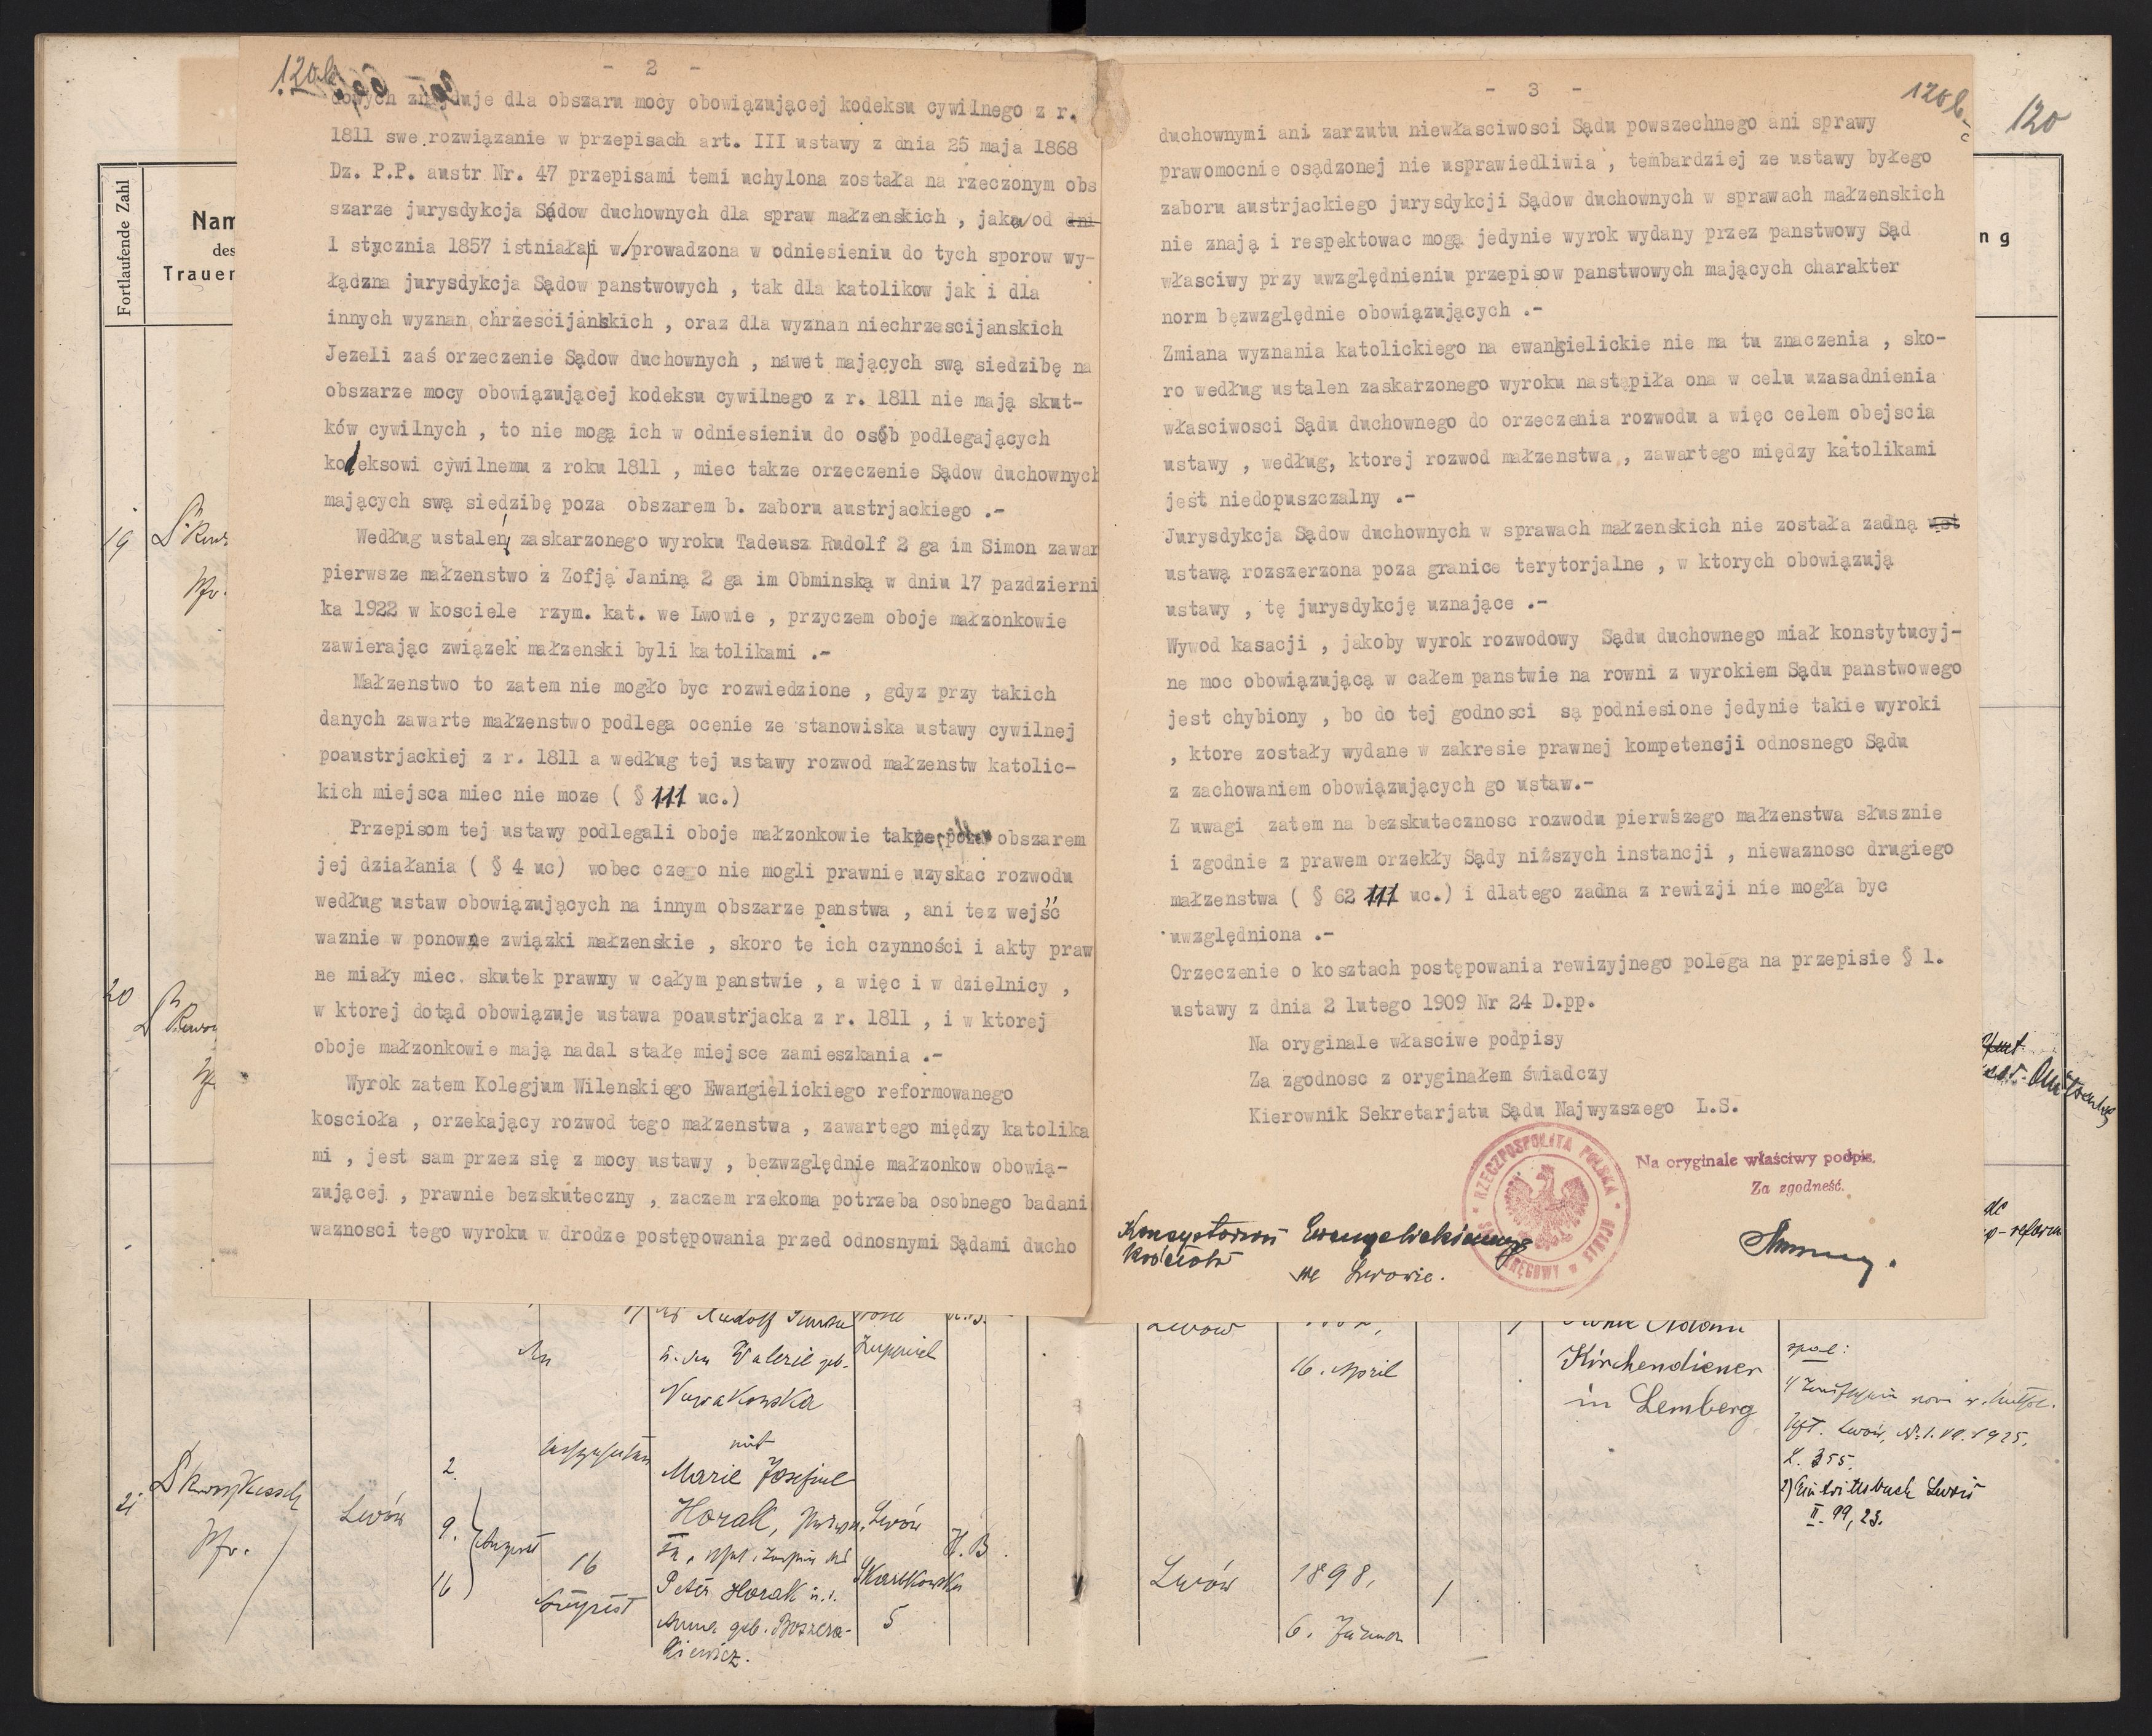 120b
- 2 -
dowych znajduje dla obszaru mocy obowiązującej kodeksu cywilnego z r.
1811 swe rozwiązanie w przepisach art. III ustawy z dnia 25 maja 1868
Dz. P.P. austr Nr. 47 przepisami temi uchylona została na rzeczonym obs
szarze jurysdykcja Sądow duchownych dla spraw małzenskich , jaka od dni
1 stycznia 1857 istniała i wprowadzona w odniesieniu do tych sporow wy-
łączna jurysdykcja Sądow panstwowych , tak dla katolikow jak i dla
innych wyznan chrzescijanskich , oraz dla wyznan niechrzescijanskich
Jezeli zaś orzeczenie Sądow duchownych , nawet mających swą siedzibę na
obszarze mocy obowiązującej kodeksu cywilnego z r. 1811 nie mają skut-
ków cywilnych , to nie mogą ich w odniesieniu do osób podlegających
kodeksowi cywilnemu z roku 1811 , miec takze orzeczenie Sądow duchownych
mających swą siedzibę poza obszarem b. zaboru austrjackiego .-
Według ustaleń zaskarzonego wyroku Tadeusz Rudolf 2 ga im Simon zawar
pierwsze małzenstwo z Zofją Janiną 2 ga im Obminską w dniu 17 pazdzierni
ka 1922 w kosciele rzym. kat. we Lwowie , przyczem oboje małzonkowie
zawierając związek małzenski byli katolikami .-
Małzenstwo to zatem nie mogło byc rozwiedzione , gdyz przy takich
danych zawarte małzenstwo podlega ocenie ze stanowiska ustawy cywilnej
poaustrjackiej z r. 1811 a według tej ustawy rozwod małzenstw katolic-
kich miejsca miec nie moze ( § 111 uc.)
Przepisom tej ustawy podlegali oboje małzonkowie takze poza obszarem
jej działania ( § 4 uc) wobec czego nie mogli prawnie uzyskac rozwodu
według ustaw obowiązujących na innym obszarze panstwa , ani tez wejść
waznie w ponowne związki małzenskie , skoro te ich czynności i akty praw
ne miały miec. skutek prawny w całym panstwie , a więc i w dzielnicy ,
w ktorej dotąd obowiązuje ustawa poaustrjacka z r. 1811 , i w ktorej
oboje małzonkowie mają nadal stałe miejsce zamieszkania .-
Wyrok zatem Kolegjum Wilenskiego Ewangielickiego reformowanego
koscioła , orzekający rozwod tego małzenstwa , zawartego między katolika
mi , jest sam przez się z mocy ustawy , bezwzględnie małzonkow obowią-
zującej , prawnie bezskuteczny , zaczem rzekoma potrzeba osobnego badani
waznosci tego wyroku w drodze postępowania przed odnosnymi Sądami ducho
- 3 -
120b
c
120
duchownymi ani zarzutu niewłasciwosci Sądu powszechnego ani sprawy
prawomocnie osądzonej nie usprawiedliwia , tembardziej ze ustawy byłego
zaboru austrjackiego jurysdykcji Sądow duchownych w sprawach małzenskich
nie znają i respektowac mogą jedynie wyrok wydany przez panstwowy Sąd
własciwy przy uwzględnieniu przepisow panstwowych mających charakter
norm bezwzględnie obowiązujących .-
Zmiana wyznania katolickiego na ewangielickie nie ma tu znaczenia , sko-
ro według ustalen zaskarzonego wyroku nastąpiła ona w celu uzasadnienia
własciwosci Sądu duchownego do orzeczenia rozwodu a więc celem obejscia
ustawy , według, ktorej rozwod małzenstwa , zawartego między katolikami
jest niedopuszczalny .-
Jurysdykcja Sądow duchownych w sprawach małzenskich nie została zadną ust
ustawą rozszerzona poza granice terytorjalne , w ktorych obowiązują
ustawy , tę jurysdykcję uznające .-
Wywod kasacji , jakoby wyrok rozwodowy Sądu duchownego miał konstytucyj-
ne moc obowiązującą w całem panstwie na rowni z wyrokiem Sądu panstwowego
jest chybiony , bo do tej godnosci są podniesione jedynie takie wyroki
, ktore zostały wydane w zakresie prawnej kompetencji odnosnego Sądu
z zachowaniem obowiązujących go ustaw.-
Z uwagi zatem na bezskutecznosc rozwodu pierwszego małzenstwa słusznie
i zgodnie z prawem orzekły Sądy niższych instancji , niewaznosc drugiego
małzenstwa ( § 62 111 uc.) i dlatego zadna z rewizji nie mogła byc
uwzględniona .-
Orzeczenie o kosztach postępowania rewizyjnego polega na przepisie § 1.
ustawy z dnia 2 lutego 1909 Nr 24 D.pp.
Na oryginale własciwe podpisy
Za zgodnosc z oryginałem świadczy
Kierownik Sekretarjatu Sądu Najwyzszego L.S.
RZECZPOSPOLITA POLSKA
OKRĘGOWY w STRYJU
Na oryginale właściwy podpis.
Za zgodność.
Konsystorzowi Ewangelickiemu
kościoła
we Lwowie.
Fortlaufende Zahl
Nam
des
Trauen
ng
19
Pfr.
20
Rudolf
Valerie geb.
Nowakowska
mit
Marie Josefine
Horak,
Peter Horak
Anna geb.
kiewicz.
21
Pfr.
Lwów
2.
9.
16
August
16
August
Lwów
5
H.B.
Lwów
16. April
Kirchendiener
in Lemberg
Lwów
1898,
6.
1
Lwów, 1925,
L. 355.
2) Eintrittsbuch Lwów
II. 99, 23.